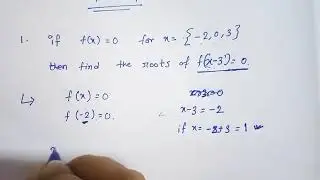 1. if f(x)=0 for x= {-2,0,3}
then find the roots of f(x-3)=0.
↳ f(x)=0
f(-2)=0.
x-3=-2
if x= -2+3 = 1